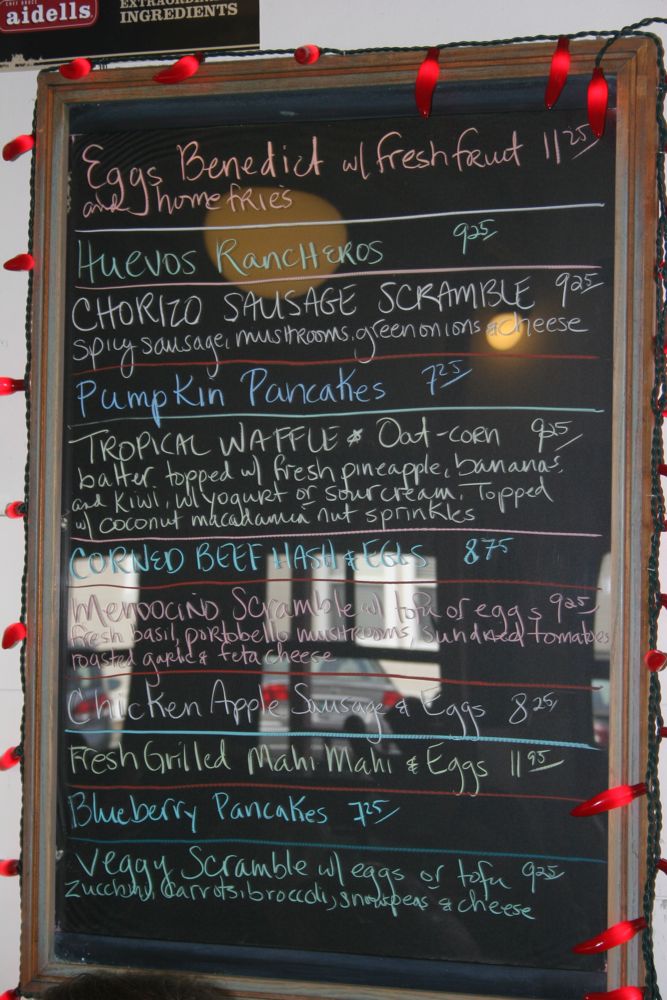 CHEF BRUCE
aidells
EXTRAORDINARY
INGREDIENTS
Eggs Benedict w/ fresh fruit 11 25
and home fries
HUEVOS RANCHEROS 9 25
CHORIZO SAUSAGE SCRAMBLE 9 25
spicy sausage, mushrooms, green onions & cheese
Pumpkin Pancakes 7 25
TROPICAL WAFFLE & Oat-corn 9 25
batter topped w/ fresh pineapple, bananas,
and kiwi, w/ yogurt or sour cream. Topped
w/ coconut macadamia nut sprinkles
CORNED BEEF HASH & EGGS 8 75
MENDOCINO Scramble w/ tofu or eggs 9 25
fresh basil, portobello mushrooms, sundried tomatoes
roasted garlic & feta cheese
Chicken Apple Sausage & Eggs 8 25
Fresh Grilled Mahi Mahi & Eggs 11 95
Blueberry Pancakes 7 25
Veggy Scramble w/ eggs or tofu 9 25
zucchini, carrots, broccoli, snowpeas & cheese